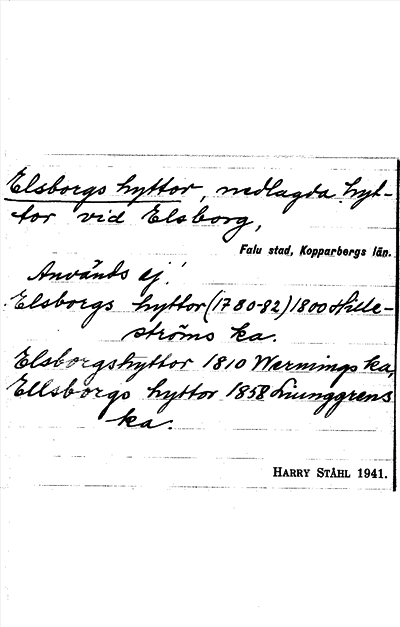 Elsborgs hyttor, nedlagda hyt-
tor vid Elsborg,
Falu stad, Kopparbergs län.
Används ej!
Elsborgs hyttor (1780-82) 1800 Hille-
ströms ka.
Elsborgshyttor 1810 Wernings ka,
Ellsborgs hyttor 1858 Liunggrens
ka.
HARRY STÅHL 1941.